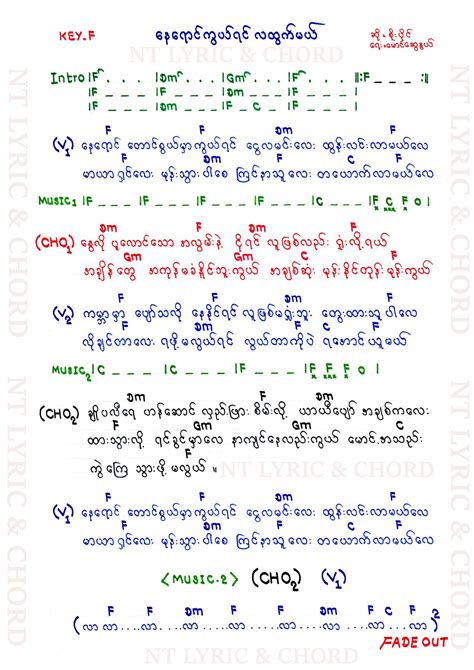 KEY.F နေရောင်ကွယ်ရင် လထွက်မယ် ဆို - စိုးပိုင်
ရေး - မောင်ဆွေငွယ်
NT LYRIC & CHORD
Intro |F . . . |Dm . . . |Gm . . . |F . . . ||:F _ _ _ :||
|F _ _ _ |F _ _ _ |Dm _ _ _ |F _ _ _ |
|F _ _ _ |Dm _ _ _ |F _ C _ |F _ _ _ |
F F Dm F
(V1) နေရောင် တောင်စွယ်မှာကွယ်ရင် ငွေလမင်းလေး ထွန်းလင်းလာမယ်လေ
F Dm C F
မာယာရှင်လေး မုန်းသွားပါစေ ကြင်နာသူလေး တယောက်လာမယ်လေ
MUSIC1 |F _ _ _ |F _ _ _ |F _ _ _ |F _ _ _ |C _ _ _ |F C F 0 |
Dm F C F
(CHO1) နွေလို ပူလောင်သော အလွမ်းနဲ့ ငိုရင် လူဖြစ်လည်း ရှုံးလို့ရယ်
Gm C Gm C
အချိန်တွေ အကုန်မခံနိုင်ဘူးကွယ် အချစ်ဆုံး မုန်းနိုင်တုန်းမုန်းကွယ်
F F Dm F
(V2) ကမ္ဘာမှာ ပျော်သလို နေနိုင်ရင် လူဖြစ်မရှုံးဘူး တွေးထားသူပါလေ
F Dm C F
လိုချင်တာလေး ရဖို့မလွယ်ရင် လွယ်တာကိုပဲ ရအောင်ယူမယ်
MUSIC2 |C _ _ _ |C _ _ _ |F _ _ _ |F _ _ _ |F F F 0 |
Dm F C F
(CHO2) ချိုပလီရေ ဟန်ဆောင် လှည့်ဖြား စိမ်းလို့ ယာယီပျော် အချစ်ကလေး
Gm C Gm C
ထားသွားလို့ ရင်ခွင်မှာလေ နာကျင်နေလည်းကွယ် မောင့်အသည်း
F
ကွဲကြေ သွားဖို့ မလွယ် ။
F F Dm F
(V1) နေရောင် တောင်စွယ်မှာကွယ်ရင် ငွေလမင်းလေး ထွန်းလင်းလာမယ်လေ
F Dm C F
မာယာရှင်လေး မုန်းသွားပါစေ ကြင်နာသူလေး တယောက်လာမယ်လေ
<MUSIC.2> (CHO2) (V1)
F F Dm F F Dm F C F
(လာ လာ .... လာ .... လာ .... လာ .... လာ .... လာ .... လာ .... လာ လာ လာ)2
FADE OUT
NT LYRIC & CHORD